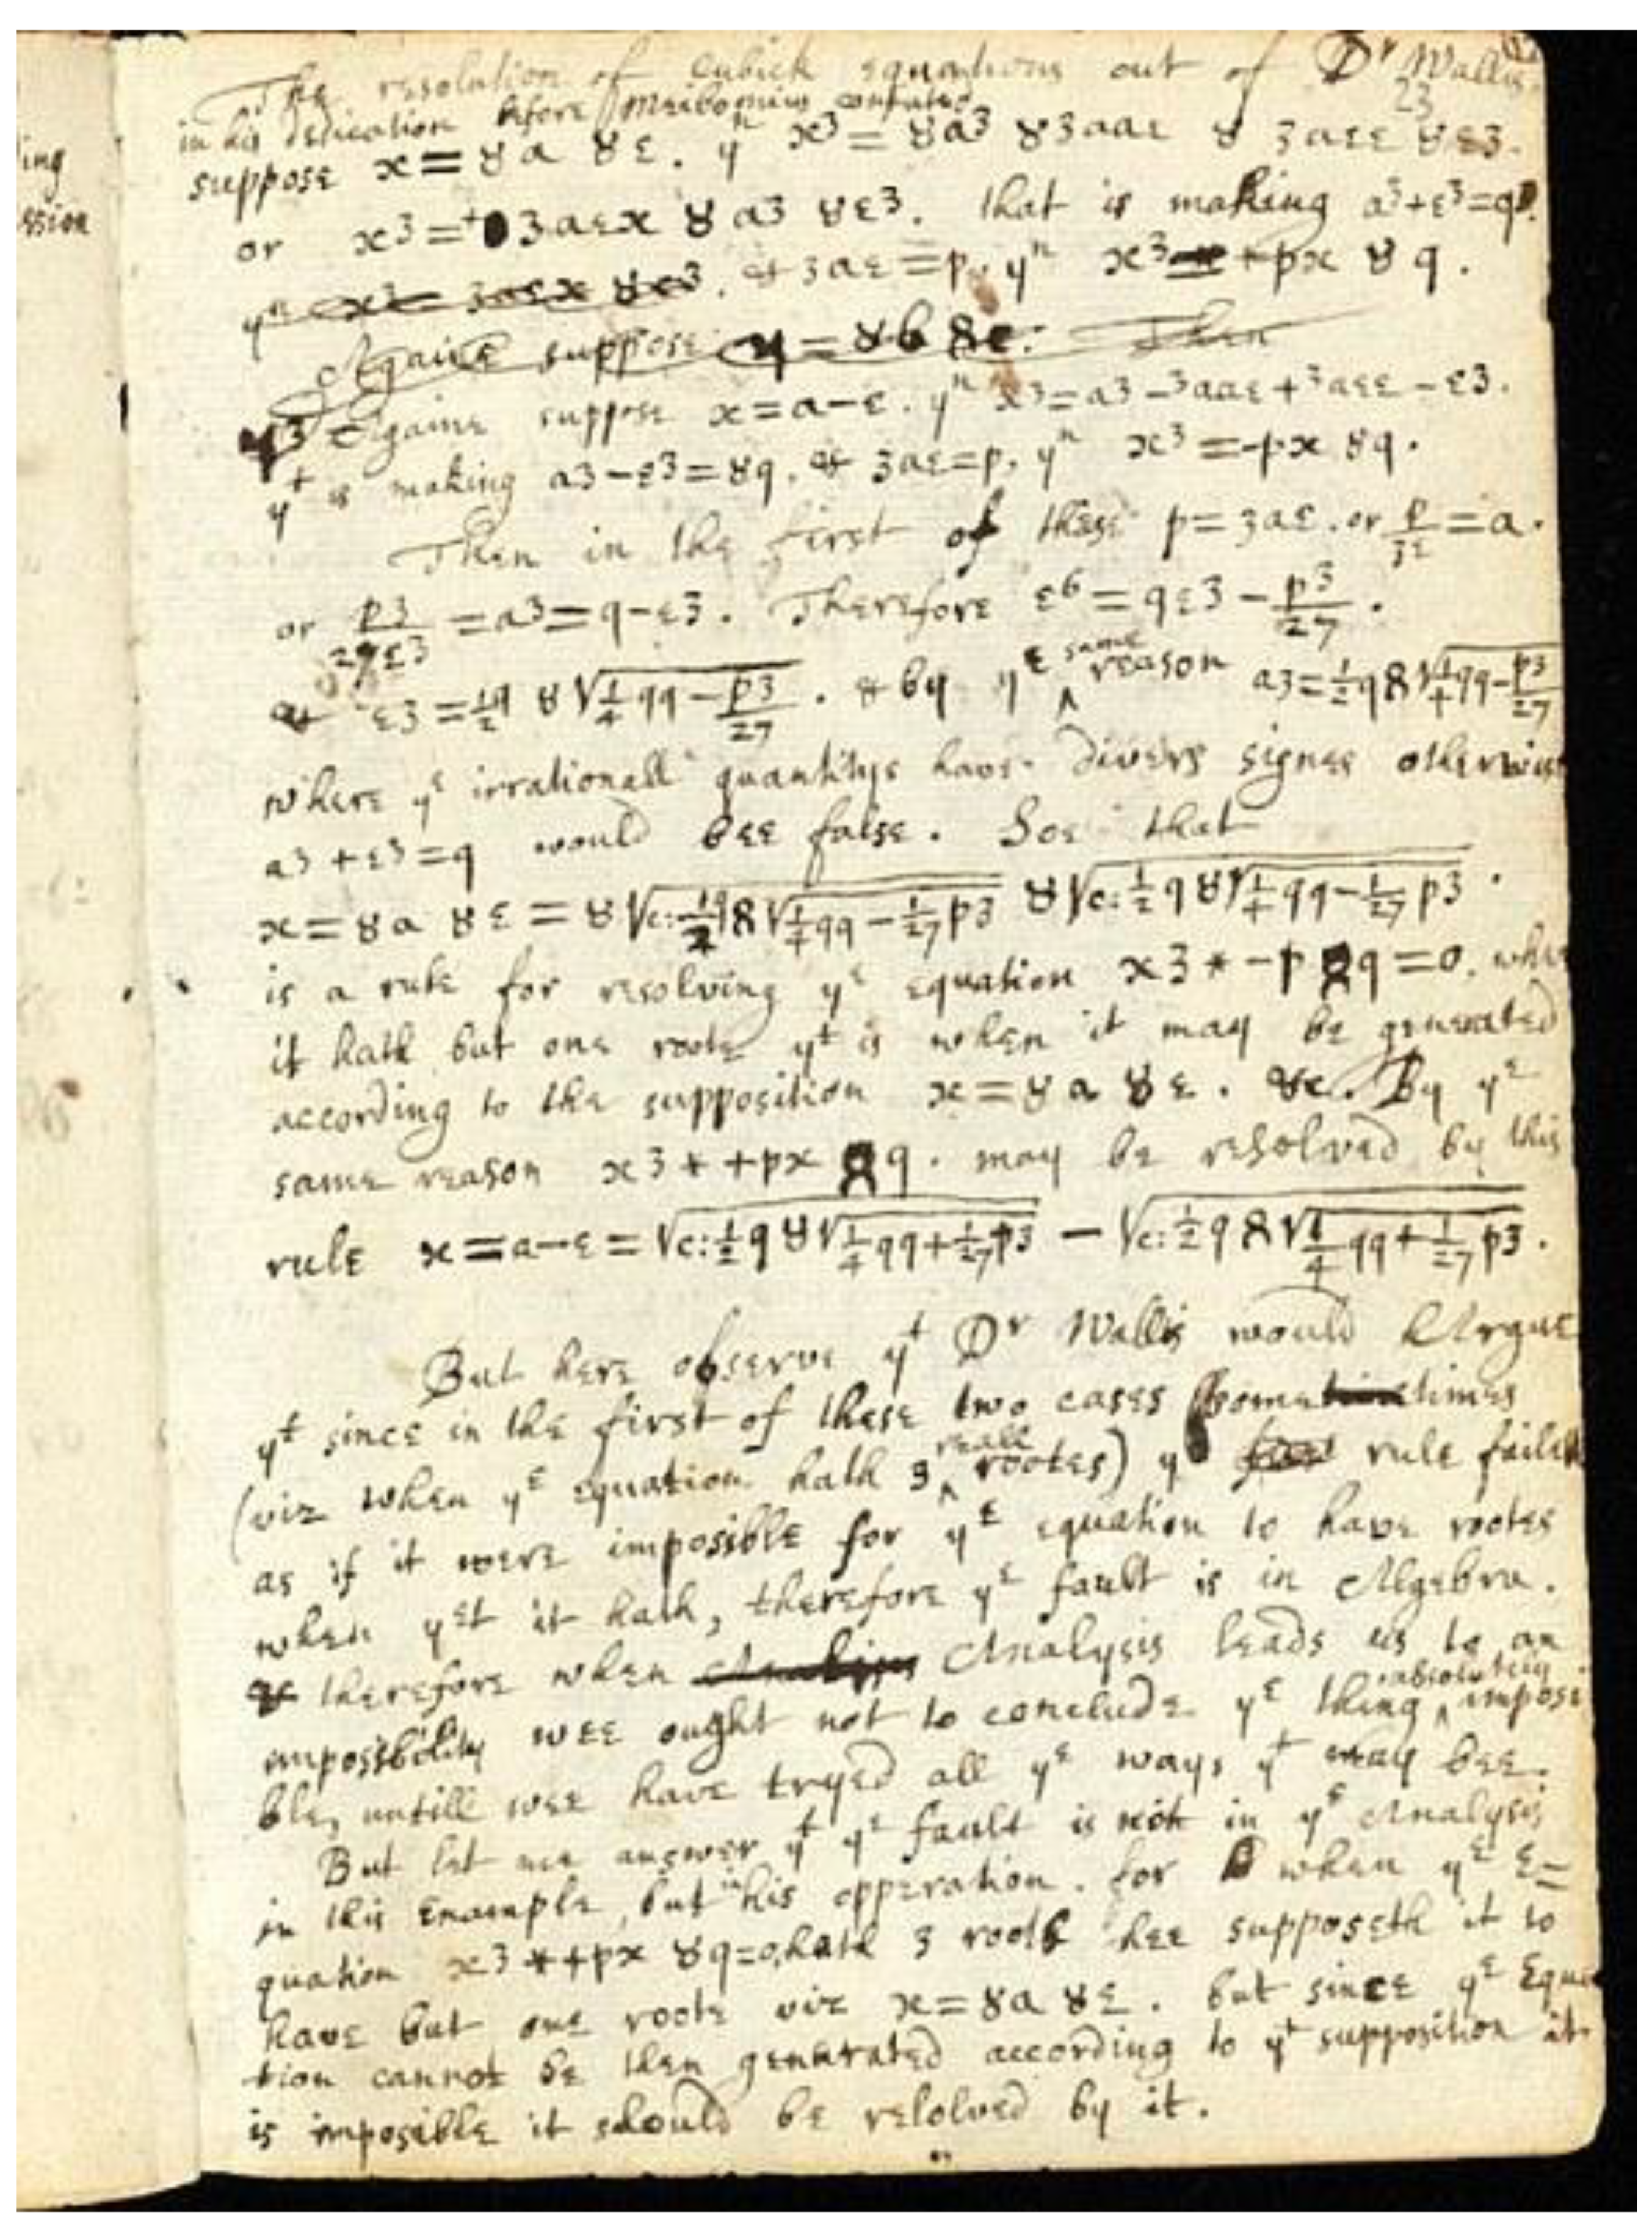 The resolution of Cubick equations out of Dr Wallis
in his Dedication before Meibomius confuted
23
suppose x=૪a ૪ε. yn x3=૪a3 ૪3aaε ૪ 3aεε ૪ε3.
or x3=+3aεx ૪ a3 ૪ε3. that is making a3+ε3=q.
yn x3= 3aεx ૪ε3. & 3aε=p. yn x3 +px ૪ q.
Againe suppose y=૪b ૪c. Then
Againe suppose x=a-ε. yn x3=a3-3aaε+3aεε-ε3.
yt is making a3-ε3=૪q. & 3aε=p. yn x3=-px ૪q.
Then in the first of these p=3aε. or p/3ε=a.
or p3/27ε3=a3=q-ε3. Therefore ε6=qε3-p3/27.
& ε3=1/2q ૪√1/4qq-p3/27. & by ye same reason a3=1/2q 8√1/4qq-p3/27
where ye irrationall quantitys have divers signes otherwise
a3+ε3=q would bee false. Soe that
x=૪a ૪ε=૪√c:1/2q8√1/4qq-1/27p3 ૪√c:1/2q૪√1/4qq-1/27p3.
is a rule for resolving ye equation x3*-p8q=0. when
it hath but one roote yt is when it may be generated
according to the supposition x=૪a ૪ε. &c. By ye
same reason x3*+px 8q. may be resolved by this
rule x=a-ε=√c:1/2q૪√1/4qq+1/27p3 - √c:1/2q8√1/4qq+1/27p3.
But here observe yt Dr Wallis would Argue
yt since in the first of these two cases sometimes
(viz when ye equation hath 3 reall rootes) ye rule faileth
as if it were imposible for ye equation to have rootes
when yet it hath, therefore ye fault is in Algebra.
& therefore when Analysis leads us to an
impossibility wee ought not to conclude ye thing absolutely imposi
ble, untill wee have tryed all ye ways yt may bee.
But let mee answer yt ye fault is not in ye Analysis
in this Example, but in his opperation. for when ye E=
quation x3*+px ૪q=0, hath 3 roots hee supposeth it to
have but one roote viz x=૪a ૪ε. but since ye Equa
tion cannot be then generated according to yt supposition it
is imposible it should be relolved by it.